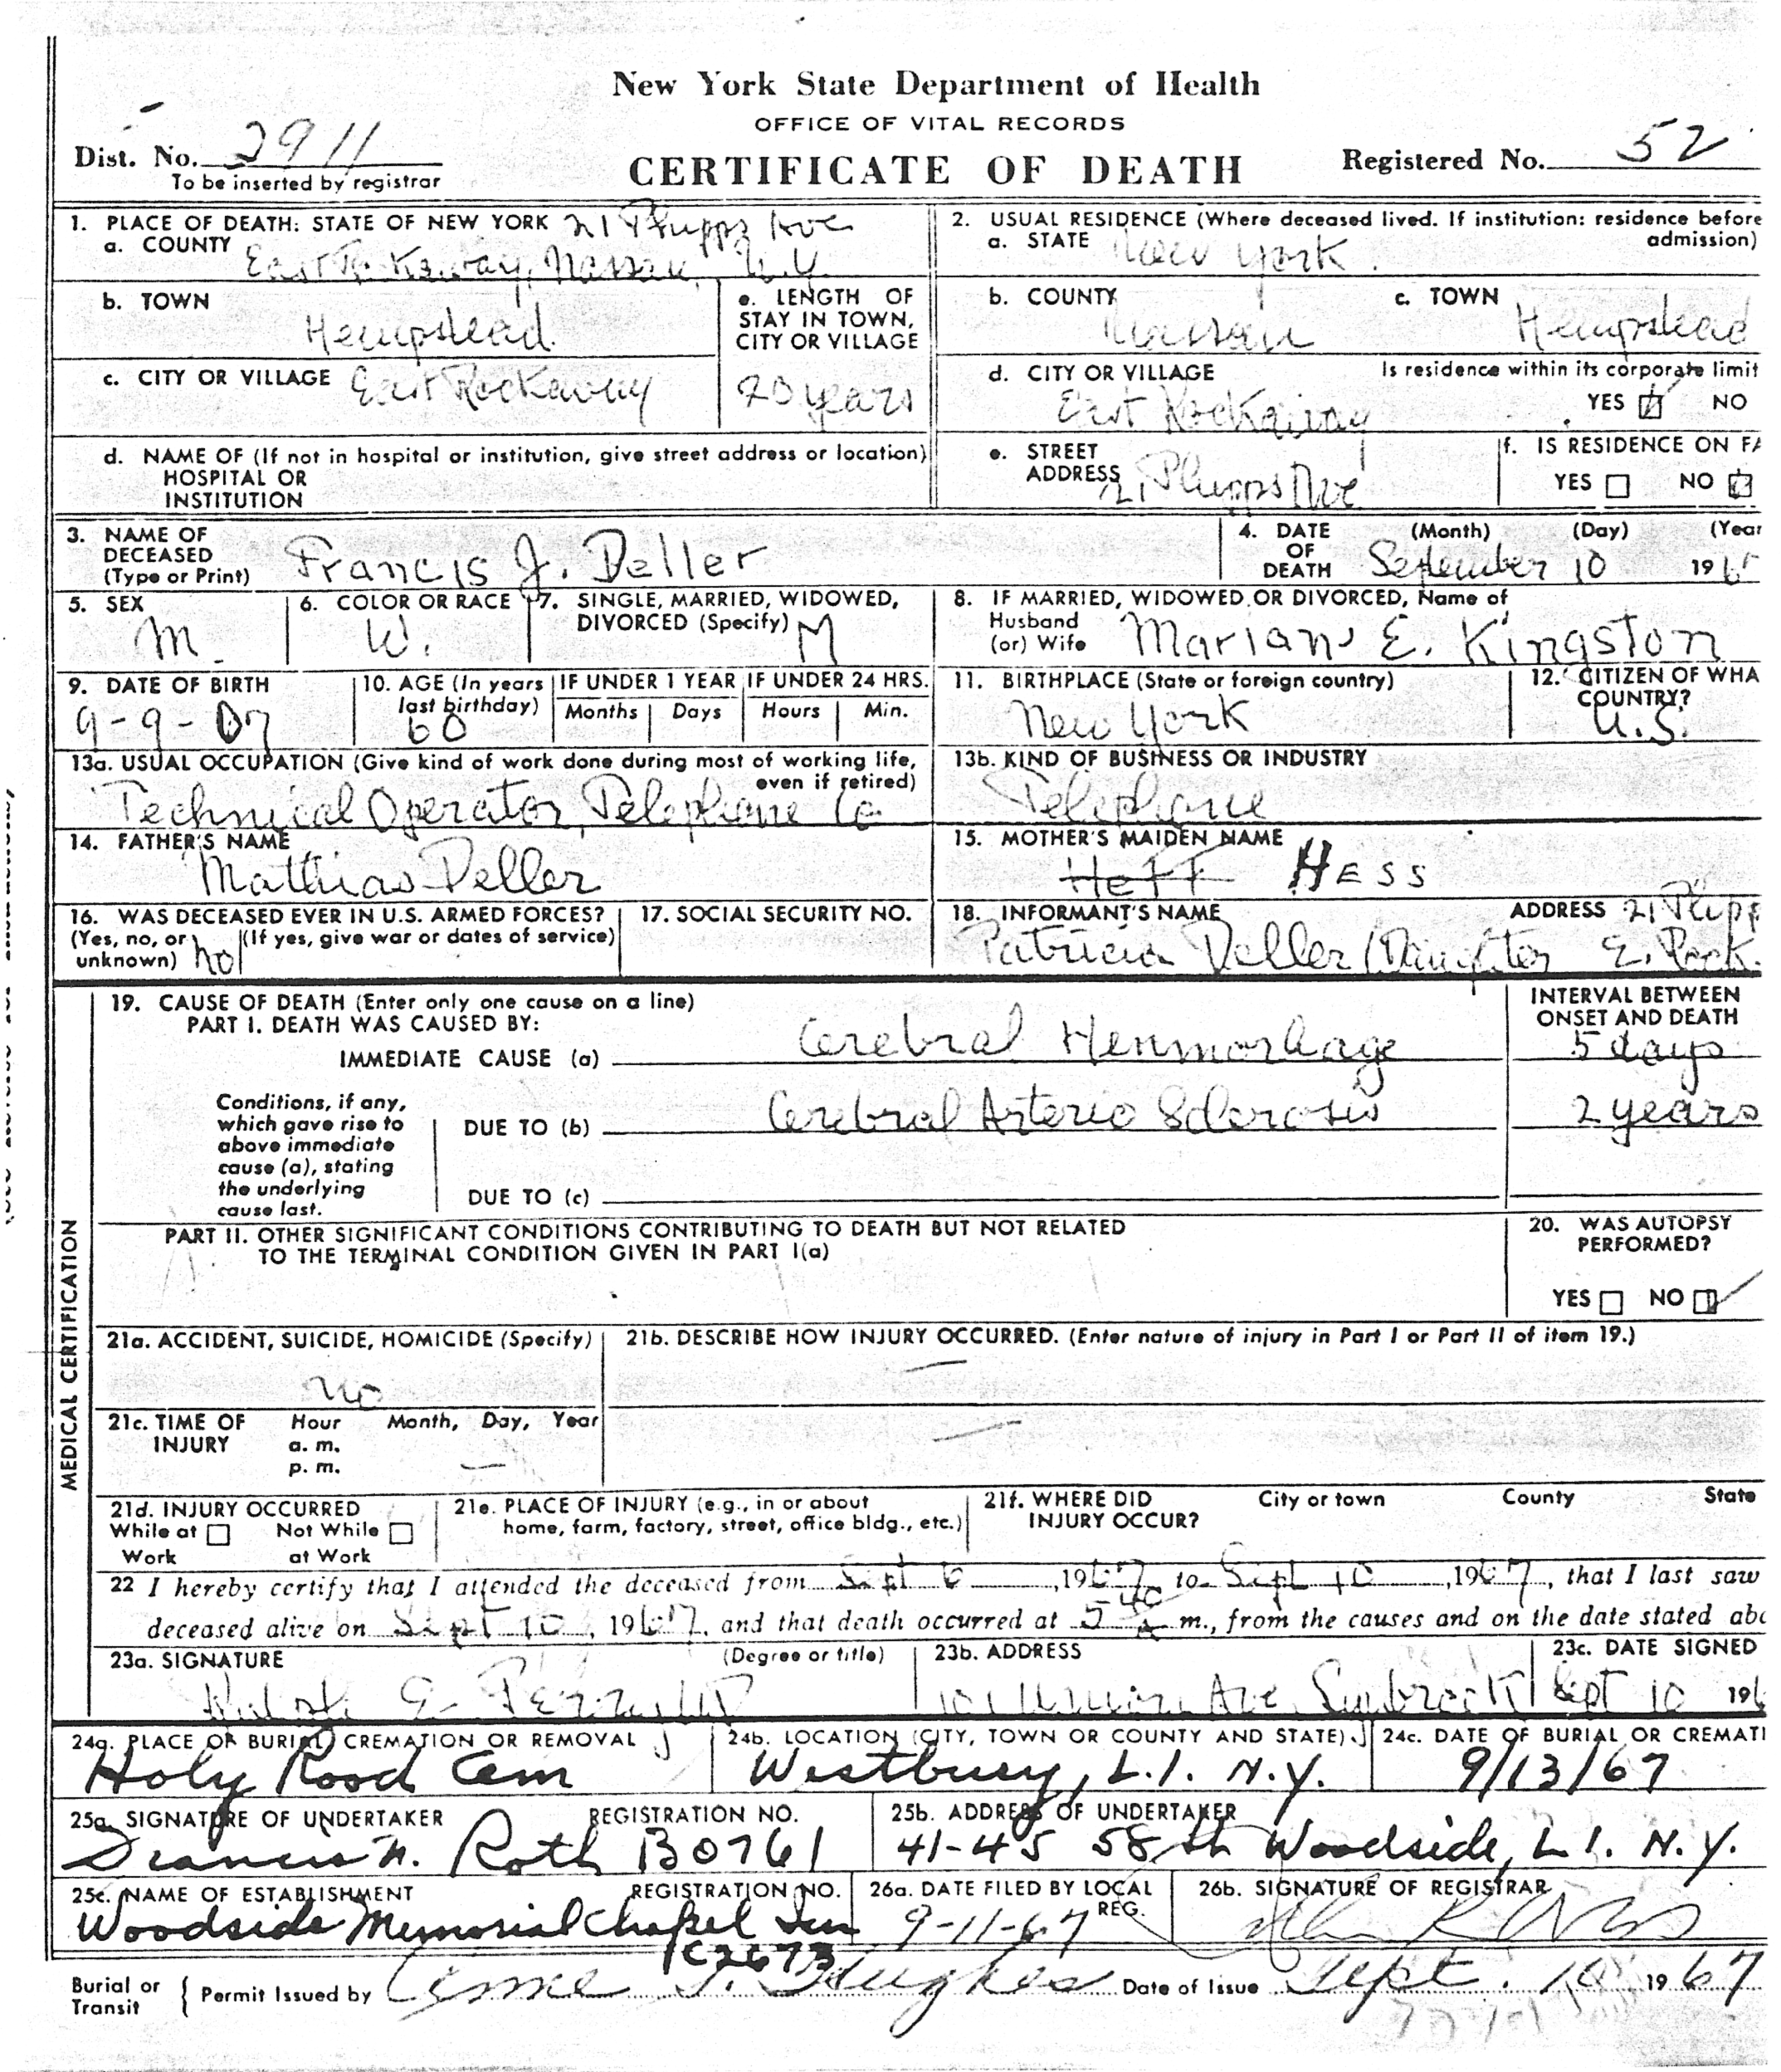 New York State Department of Health
OFFICE OF VITAL RECORDS
Dist. No. 2911
To be inserted by registrar
CERTIFICATE OF DEATH
Registered No. 52
1. PLACE OF DEATH: STATE OF NEW YORK 21 Phipps Ave
a. COUNTY East Rockaway, Nassau, N.Y.
2. USUAL RESIDENCE (Where deceased lived. If institution: residence before admission)
a. STATE New York
b. TOWN Hempstead
e. LENGTH OF STAY IN TOWN, CITY OR VILLAGE
20 years
b. COUNTY Nassau
c. TOWN Hempstead
c. CITY OR VILLAGE East Rockaway
d. CITY OR VILLAGE East Rockaway
Is residence within its corporate limit
YES NO
d. NAME OF (If not in hospital or institution, give street address or location)
HOSPITAL OR
INSTITUTION
e. STREET
ADDRESS 21 Phipps Ave
f. IS RESIDENCE ON FA
YES NO
3. NAME OF
DECEASED
(Type or Print) Francis J. Deller
4. DATE OF DEATH (Month) (Day) (Year
September 10 196
5. SEX
M
6. COLOR OR RACE
W.
7. SINGLE, MARRIED, WIDOWED,
DIVORCED (Specify) M
8. IF MARRIED, WIDOWED OR DIVORCED, Name of
Husband
(or) Wife Marian E. Kingston
9. DATE OF BIRTH
9-9-07
10. AGE (In years
last birthday)
60
IF UNDER 1 YEAR
Months Days
IF UNDER 24 HRS.
Hours Min.
11. BIRTHPLACE (State or foreign country)
New York
12. CITIZEN OF WHA
COUNTRY?
U.S.
13a. USUAL OCCUPATION (Give kind of work done during most of working life,
even if retired)
Technical Operator, Telephone Co
13b. KIND OF BUSINESS OR INDUSTRY
Telephone
14. FATHER'S NAME
Mathias Deller
15. MOTHER'S MAIDEN NAME
Heff HESS
16. WAS DECEASED EVER IN U.S. ARMED FORCES?
(Yes, no, or (If yes, give war or dates of service)
unknown) no
17. SOCIAL SECURITY NO.
18. INFORMANT'S NAME ADDRESS 21 Phipp
Patricia Deller (Daughter E. Rock.
MEDICAL CERTIFICATION
19. CAUSE OF DEATH (Enter only one cause on a line)
PART I. DEATH WAS CAUSED BY:
IMMEDIATE CAUSE (a) Cerebral Hemmorhage
INTERVAL BETWEEN
ONSET AND DEATH
5 days
Conditions, if any,
which gave rise to
above immediate
cause (a), stating
the underlying
cause last.
DUE TO (b) Cerebral Arterio Sclerosis
2 years
DUE TO (c)
PART II. OTHER SIGNIFICANT CONDITIONS CONTRIBUTING TO DEATH BUT NOT RELATED
TO THE TERMINAL CONDITION GIVEN IN PART I(a)
20. WAS AUTOPSY
PERFORMED?
YES NO
21a. ACCIDENT, SUICIDE, HOMICIDE (Specify)
no
21b. DESCRIBE HOW INJURY OCCURRED. (Enter nature of injury in Part I or Part II of item 19.)
21c. TIME OF
INJURY
Hour Month, Day, Year
a. m.
p. m.
21d. INJURY OCCURRED
While at Not While
Work at Work
21e. PLACE OF INJURY (e.g., in or about
home, farm, factory, street, office bldg., etc.)
21f. WHERE DID
INJURY OCCUR?
City or town County State
22 I hereby certify that I attended the deceased from Sept 6, 1967, to Sept 10, 1967, that I last saw
deceased alive on Sept 10, 1967, and that death occurred at 5 40 m., from the causes and on the date stated abo
23a. SIGNATURE (Degree or title)
23b. ADDRESS
Ave Lynbrook
23c. DATE SIGNED
Sept 10 196
24a. PLACE OF BURIAL, CREMATION OR REMOVAL
Holy Rood Cem
24b. LOCATION (CITY, TOWN OR COUNTY AND STATE)
Westbury, L.I. N.Y.
24c. DATE OF BURIAL OR CREMATI
9/13/67
25a. SIGNATURE OF UNDERTAKER REGISTRATION NO.
Francis N. Roth B0761
25b. ADDRESS OF UNDERTAKER
41-45 58th Woodside, L.I. N.Y.
25c. NAME OF ESTABLISHMENT REGISTRATION NO.
Woodside Memorial Chapel Inc
C2673
26a. DATE FILED BY LOCAL
REG.
9-11-67
26b. SIGNATURE OF REGISTRAR
Burial or
Transit
Permit Issued by Anne T. Hughes Date of Issue Sept. 10 1967